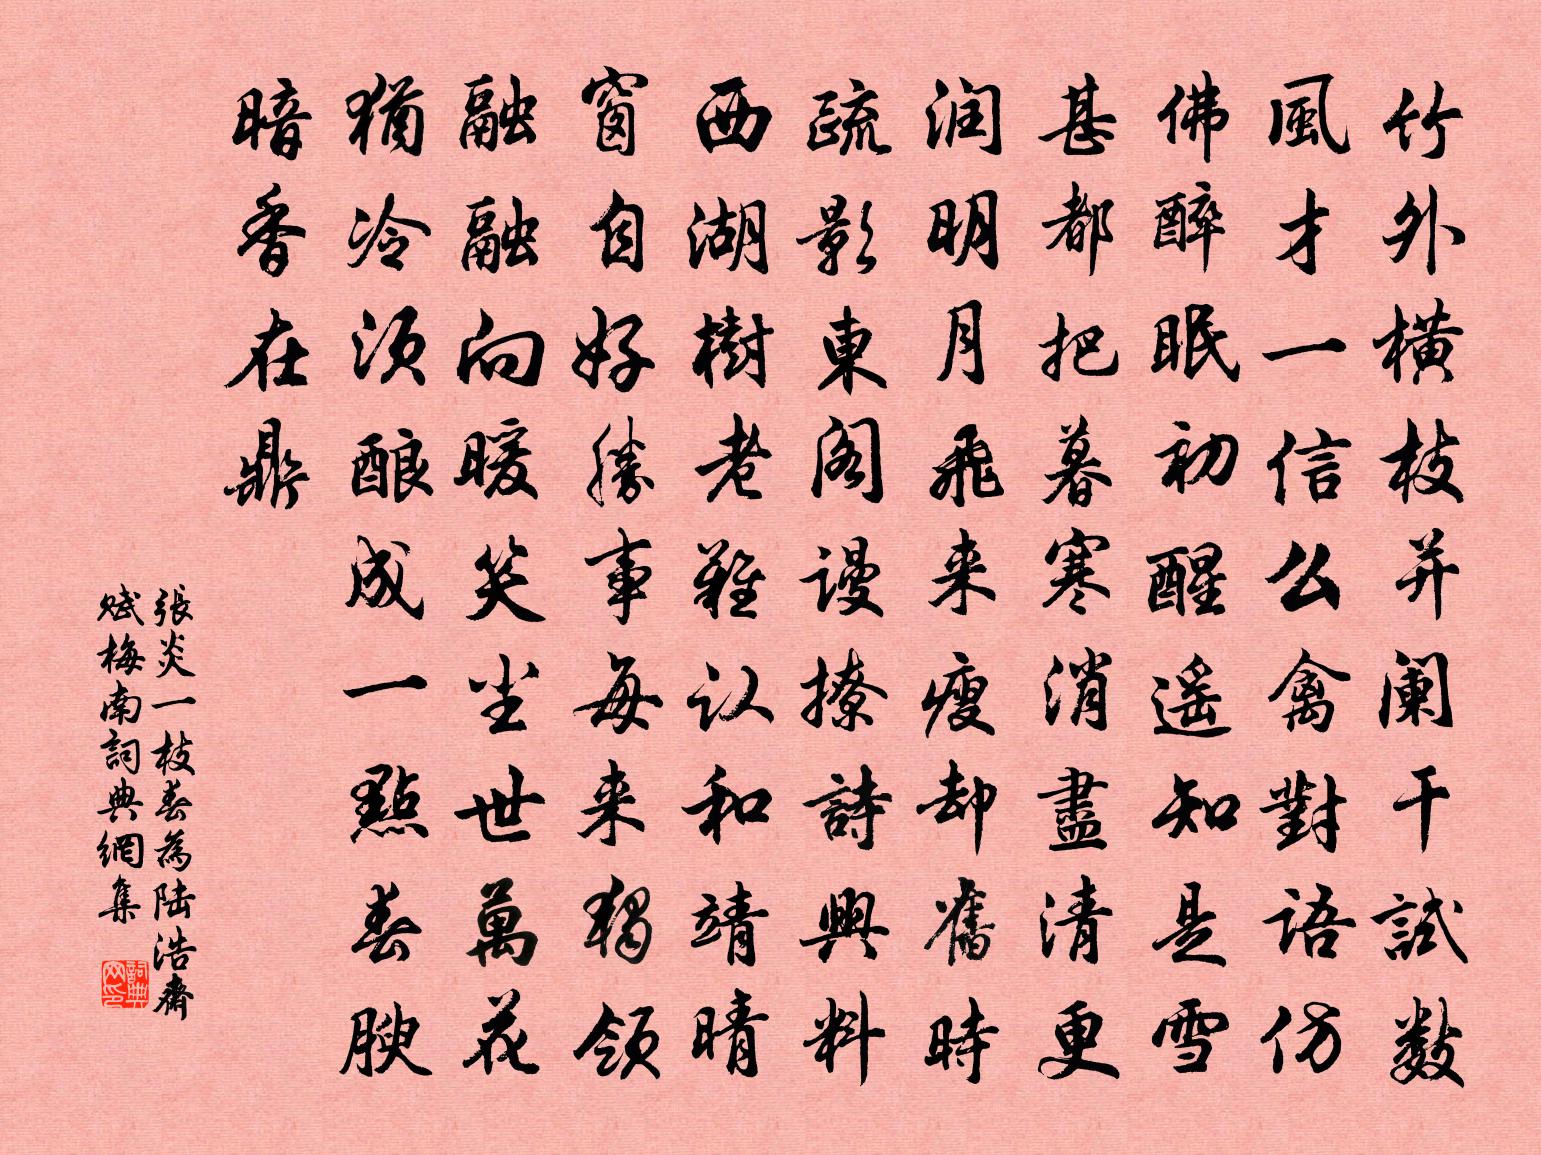 竹外橫枝并阑干試數
風才一信么禽對語仿
佛醉眠初醒遥知是雪
甚都把暮寒消盡清更
润明月飛来瘦却舊時
疏影東阁謾撩詩興料
西湖樹老難认和靖晴
窗自好勝事每来獨领
融融向暖笑尘世萬花
猶冷须酿成一點春腴
暗香在鼎
張炎一枝春為陆浩齋
赋梅南詞典網集
詞典网印